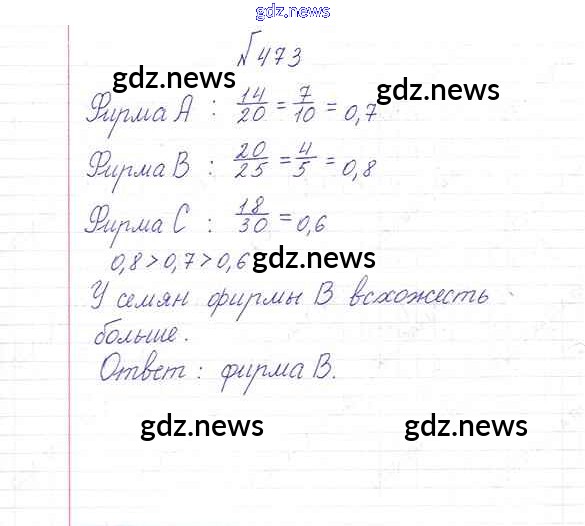 gdz.news
№473
gdz.news
gdz.news
Фирма А : 14/20 = 7/10 = 0,7
Фирма В : 20/25 = 4/5 = 0,8
Фирма С : 18/30 = 0,6
0,8 > 0,7 > 0,6
gdz.news
У семян фирмы В всхожесть
больше.
Ответ : фирма В.
gdz.news
gdz.news